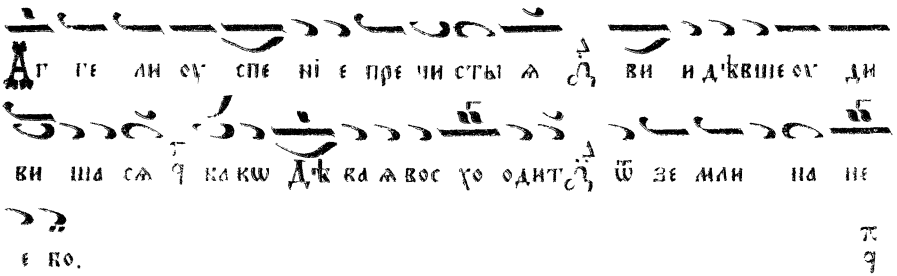 Аг ге ли оу спе ні е пре чи сты ѧ ви и дѣвше оу ди
ви ша сѧ ка кѡ Дѣ ва ѧ вос хо одит ѿ зе мли на не
е бо.